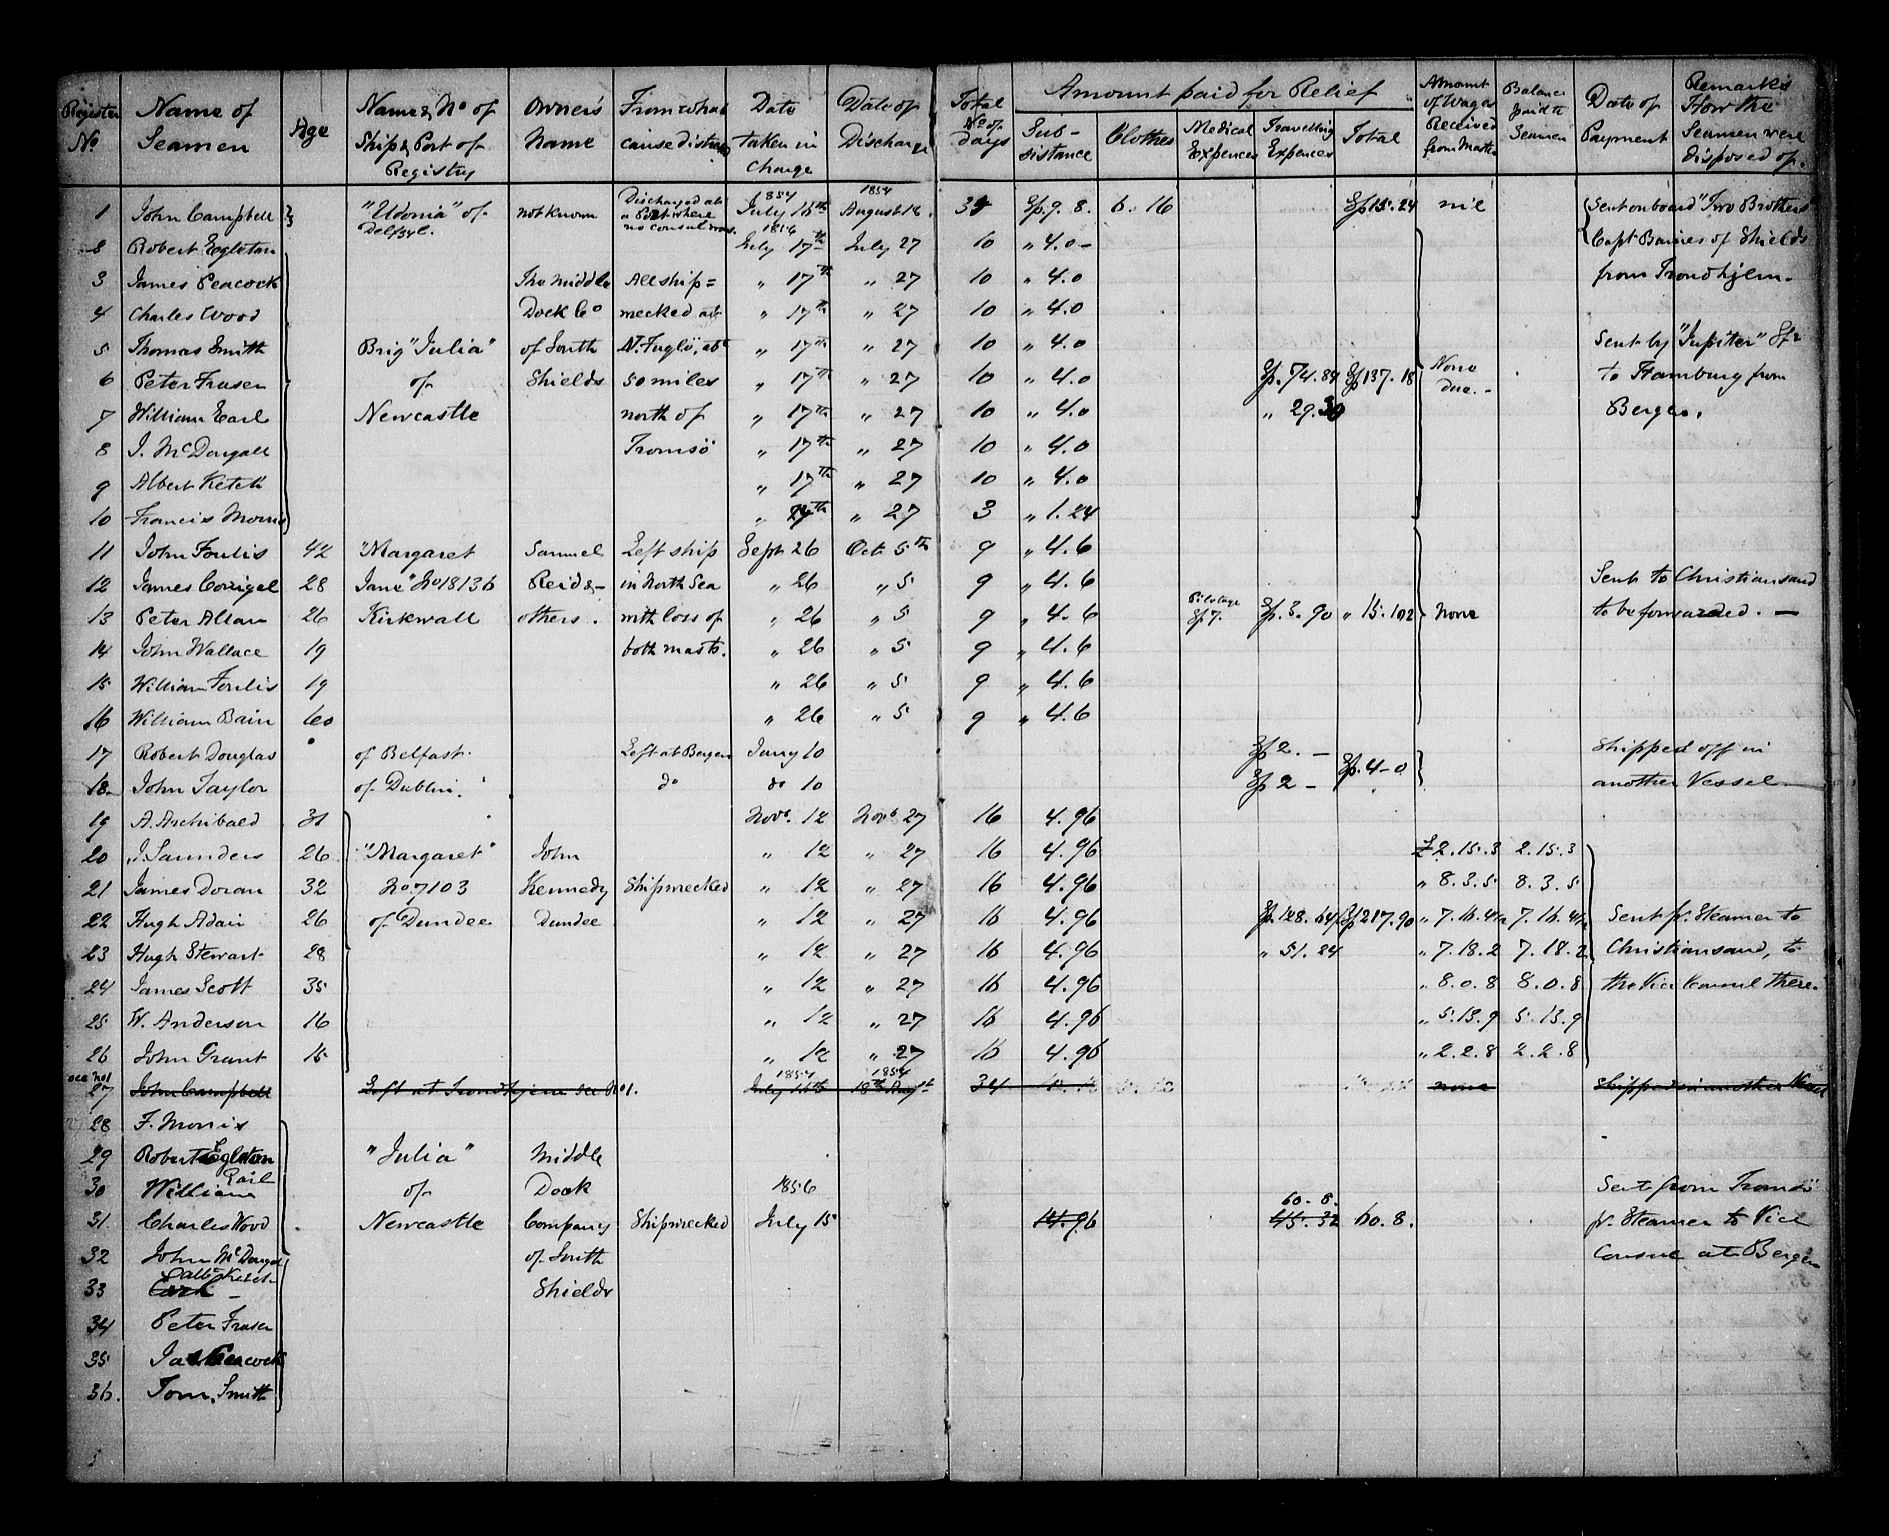 Register No | Name of Seamen | Age | Name & No of Ship & Port of Registry | Owner's Name | From what cause distress | Date taken in Charge | Date of Discharge | Total No of days | Amount paid for Relief: Subsistance | Clothes | Medical Expences | Travelling Expences | Total | Amount of Wages Received from Master | Balance paid to Seamen | Date of Payment | Remarks How the Seamen were disposed of.
1 John Campbell | "Udonia" of | not known | Discharged at a Port where no consul was. | 1854 July 16th | 1854 August 18. | Sp. 9. 8. | 6. 16 | Sp 15. 24 | nil | Sent on board "Two Brothers"
2 Robert Egleton | 1856 July 17th | July 27 | 10 | " 4.0 - | Capt Barnes of Shields
3 James Peacock | The Middle | All ship= | " 17th | " 27 | 10 | " 4.0 | from Trondhjem.
4 Charles Wood | Dock Co | wrecked at | " 17th | " 27 | 10 | " 4.0
5 Thomas Smith | Brig "Julia" | of South | N. Fuglö, abt | " 17th | " 27 | 10 | " 4.0 | Sent by "Jupiter"
6 Peter Fraser | of | Shields | 50 miles | " 17th | " 27 | 10 | " 4.0 | Sp. 74. 84 | Sp 137. 18 | None due. - | to Hamburg from
7 William Earl | Newcastle | north of | " 17th | " 27 | 10 | " 4.0 | " 29. 30 | Bergen.
8 J. McDougall | Tromsö | " 17th | " 27 | 10 | " 4.0
9 Albert Ketch | " 17th | " 27 | 10 | " 4.0
10 Francis Morris | " 24th | " 27 | 3 | " 1.24
11 John Foulis | 42 | "Margaret | Samuel | Left ship | Sept 26 | Oct. 5th | 9 | " 4. 6
12 James Corrigel | 28 | Jane" No 18136 | Reid & - | in North Sea | " 26 | " 5 | 9 | " 4. 6 | Sent to Christiansand
13 Peter Allan | 26 | Kirkwall | others. | with loss of | " 26 | " 5 | 9 | " 4. 6 | Pilotage Sp 7. | Sp. 3. 90 | " 15. 102 | None | to be forwarded. -
14 John Wallace | 19 | both masts. | " 26 | " 5 | 9 | " 4. 6
15 William Foulis | 19 | " 26 | " 5 | 9 | " 4. 6
16 William Bain | 60 | " 26 | " 5 | 9 | " 4. 6
17 Robert Douglas | of Belfast. | Left at Bergen | Jany 10 | Sp 2. - | Shipped off in
18 John Taylor | of Dublin. | do | do 10 | Sp 2 - | Sp. 4-0 | another Vessel
19 A. Archibald | 31 | Novr. 12 | Novr 27 | 16 | 4. 96
20 J. Saunders | 26 | "Margaret" | John | " 12 | " 27 | 16 | 4. 96 | £ 2. 15. 3 | 2. 15. 3
21 James Doran | 32 | No. 7103 | Kennedy | Shipwrecked | " 12 | " 27 | 16 | 4. 96 | " 8. 3. 5 | 8. 3. 5
22 Hugh Adair | 26 | of Dundee | Dundee | " 12 | " 27 | 16 | 4. 96 | Sp. 128. 64 | Sp 217. 90 | " 7. 16. 4 1/2 | 7. 16. 4 1/2 | Sent pr. Steamer to
23 Hugh Stewart | 28 | " 12 | " 27 | 16 | 4. 96 | " 51. 24 | " 7. 18. 2 | 7. 18. 2 | Christiansand, to
24 James Scott | 35 | " 12 | " 27 | 16 | 4. 96 | " 8. 0. 8 | 8. 0. 8 | the Vice Consul there.
25 W. Anderson | 16 | " 12 | " 27 | 16 | 4. 96 | " 5. 13. 9 | 5. 13. 9
26 John Grant | 15 | " 12 | " 27 | 16 | 4. 96 | " 2. 2. 8 | 2. 2. 8
see No 1
27 John Campbell | Left at Trondhjem see No 1. | 1854 July 16th | 1854 18th Augt | 34 | none | Shipped in another Vessel
28 F. Morris
29 Robert Egleton | "Julia" | Middle
30 William Earl | of | Dock | 1856 | Sent from Tromsö
31 Charles Wood | Newcastle | Company | Shipwrecked | July 15 | 14. 96 | 60. 8. 45. 32 | 60. 8. | pr. Steamer to Vice
32 John McDougal | of South | Consul at Bergen
33 Ketch | Shields
34 Peter Fraser
35 Jas Peacock
36. Tom. Smith